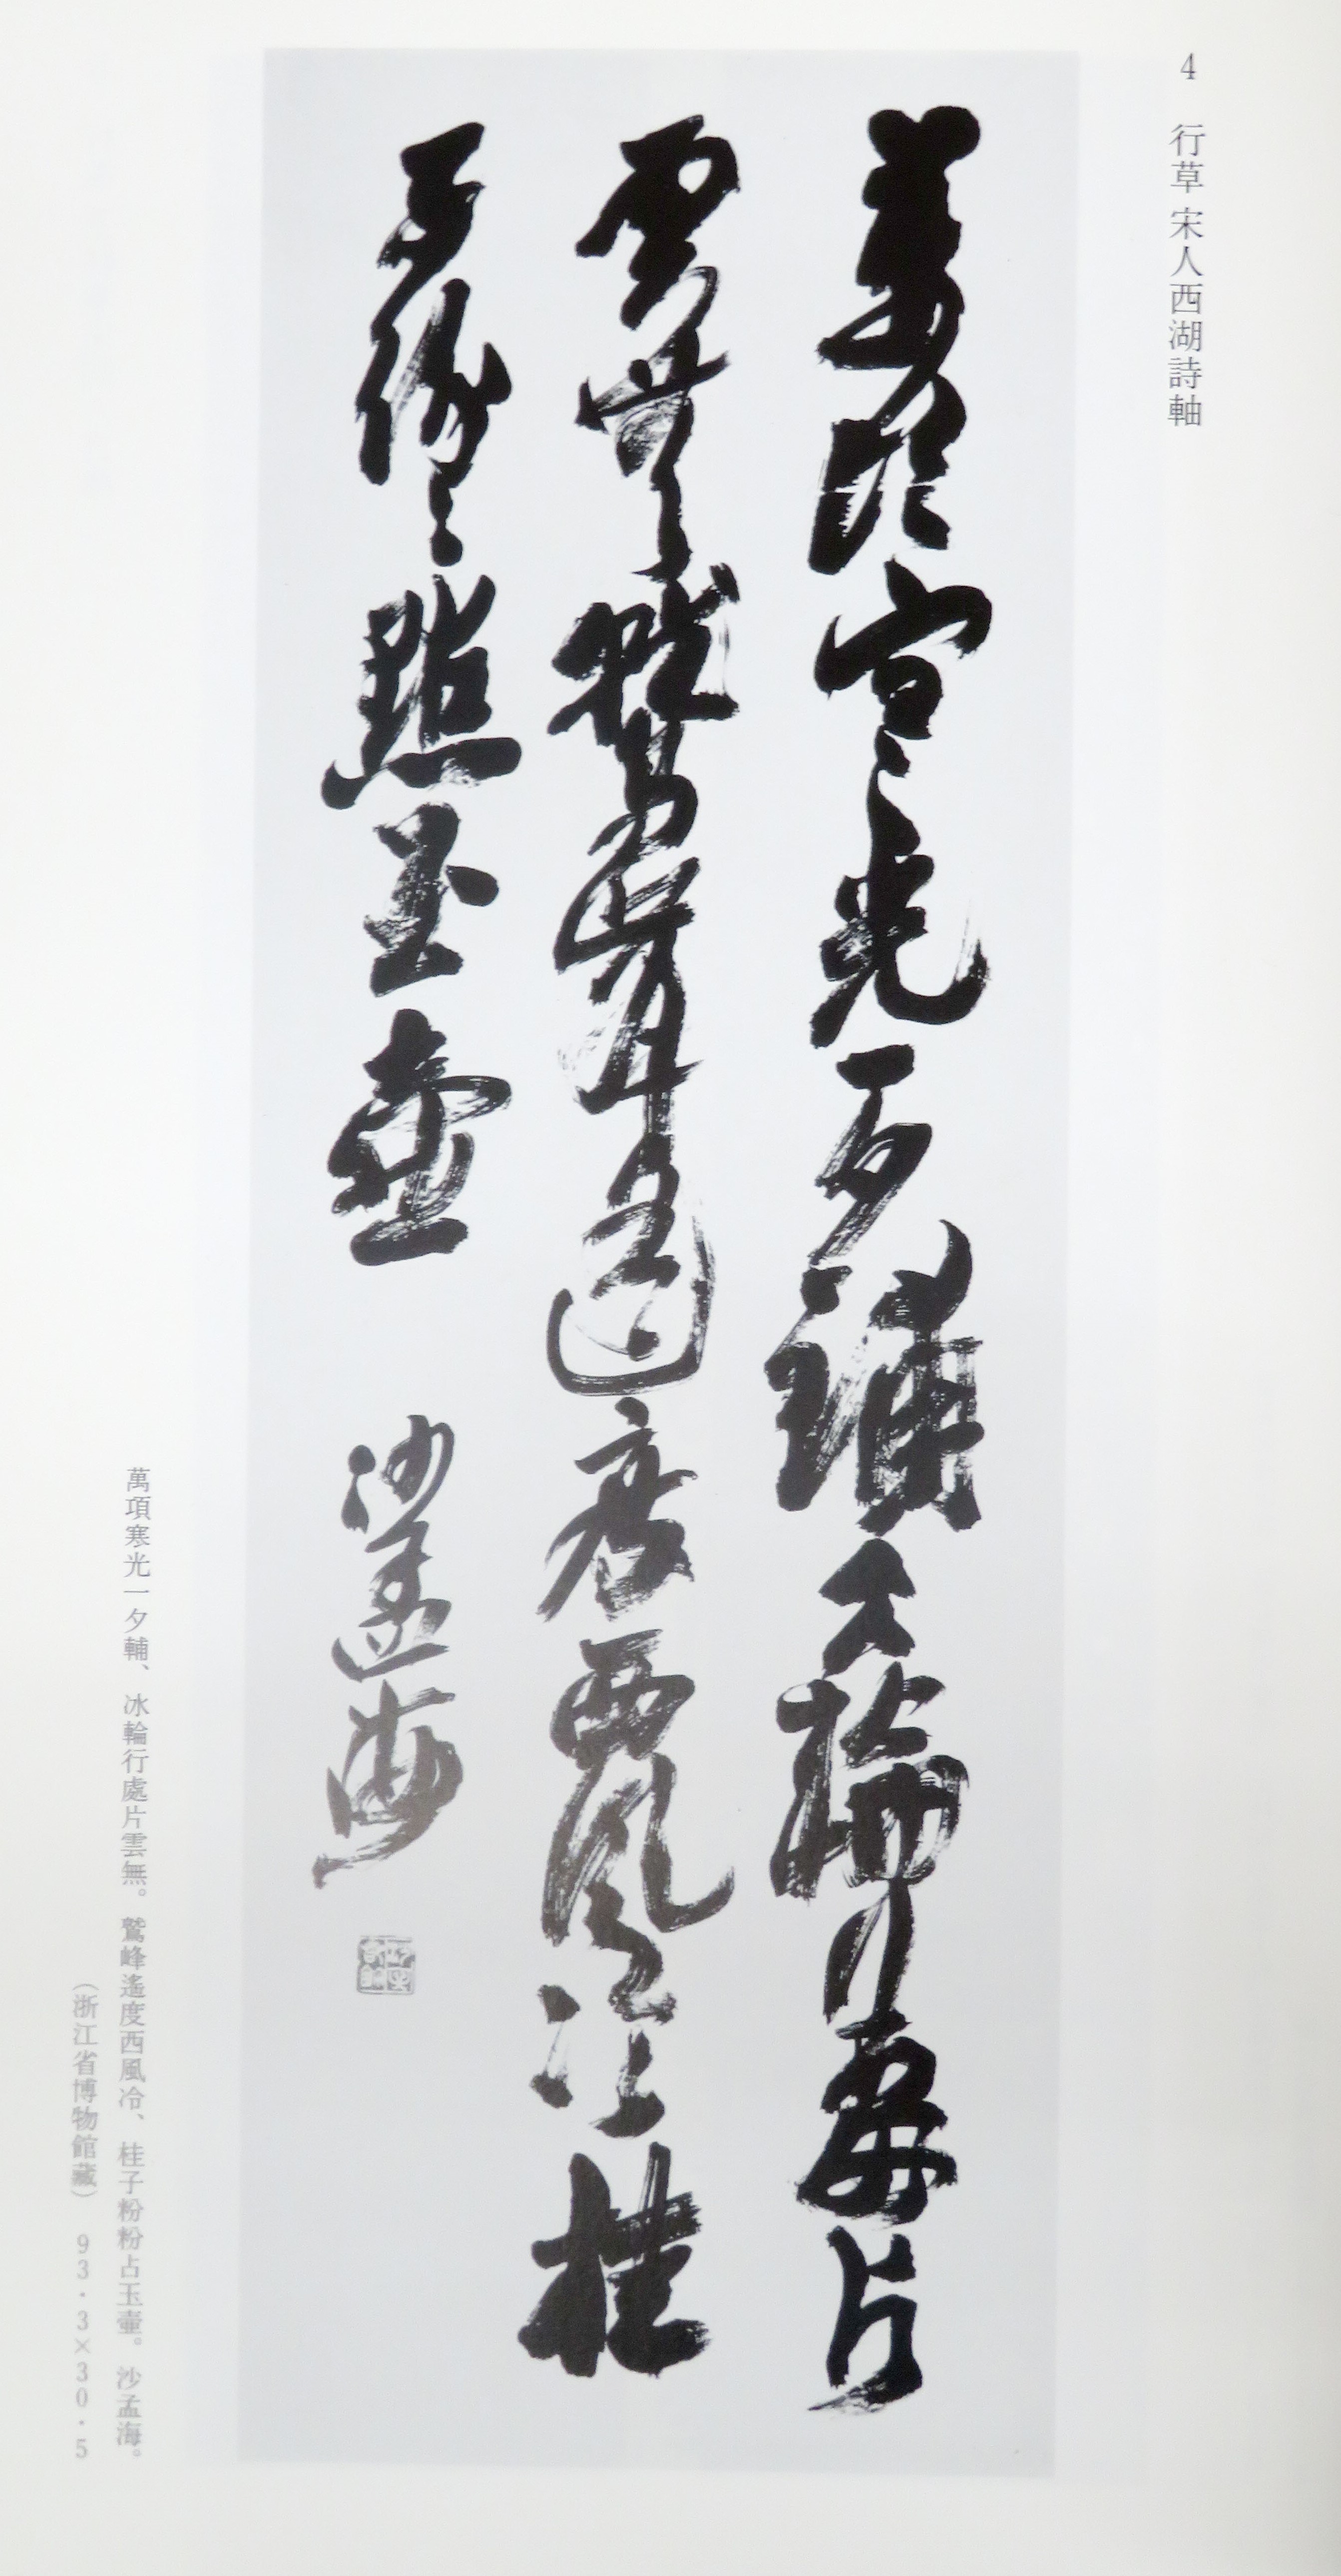 4 行草 宋人西湖詩軸
萬頃寒光一夕鋪冰輪行處片
雲無鷲峰遙度西風冷桂
子紛〻點玉壺 沙孟海
萬項寒光一夕輔、冰輪行處片雲無。鷲峰遙度西風冷、桂子粉粉占玉壷。沙孟海。
（浙江省博物館藏） 93·3×30·5